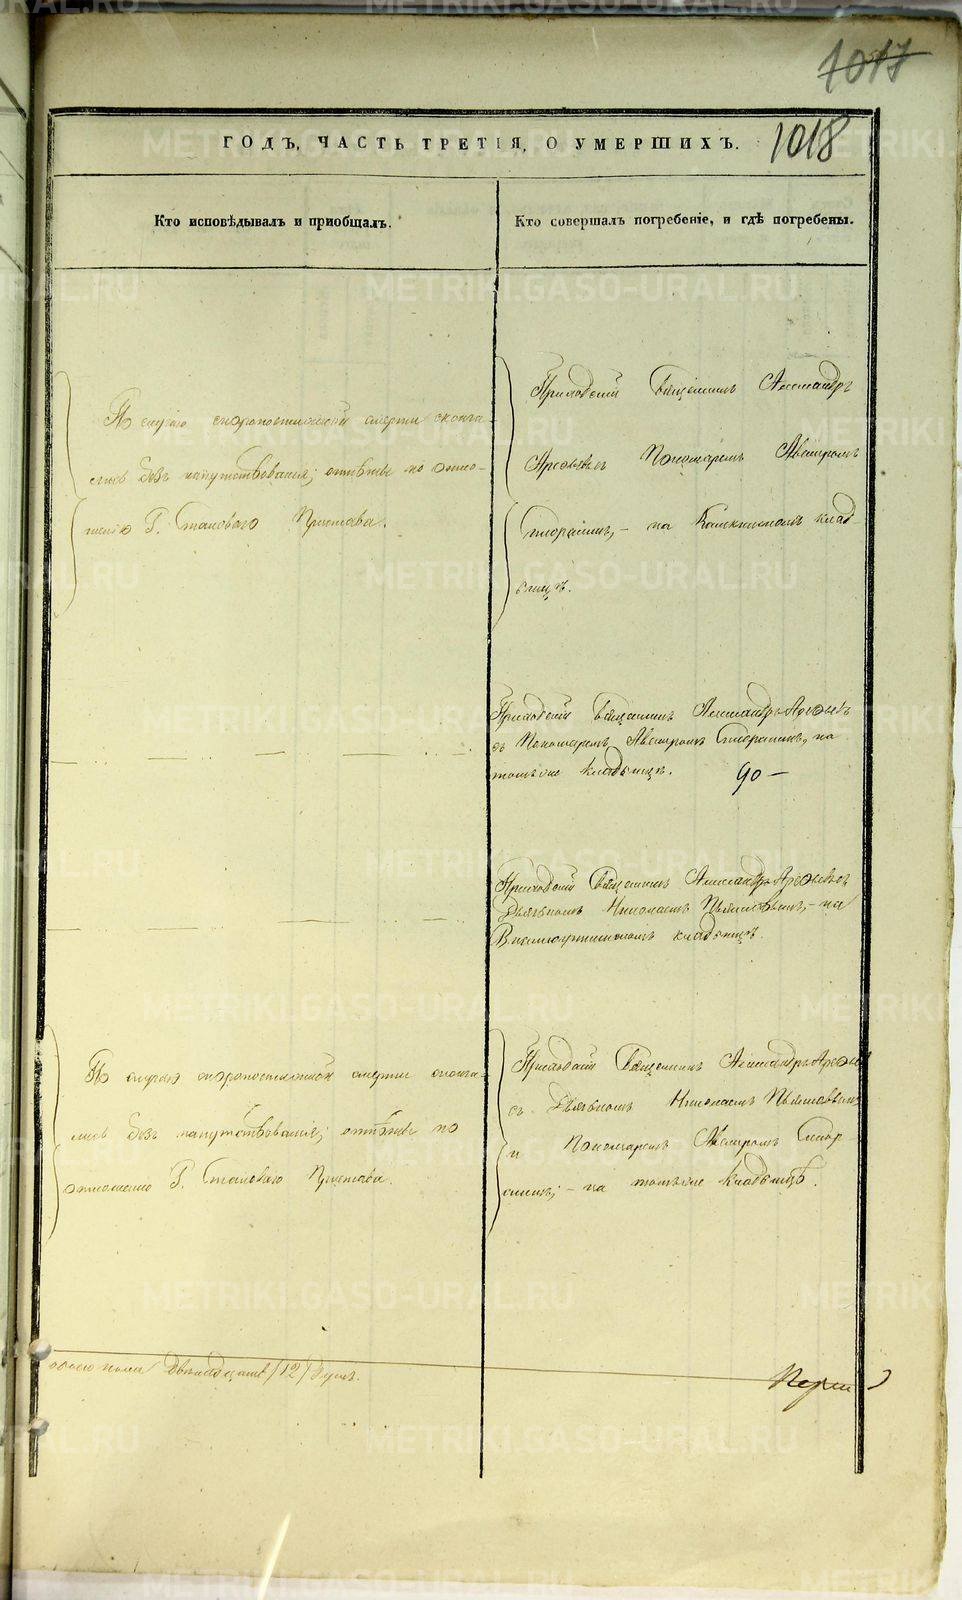 1017
1018
ГОДЪ, ЧАСТЬ ТРЕТІЯ, О УМЕРШИХЪ.
Кто исповѣдывалъ и приобщалъ.
Кто совершалъ погребеніе, и гдѣ погребены.
По случаю скоропостижной смерти сконча-
лись безъ напутствованія; отпѣты по отно-
шенію Г. Становаго Пристава.
Приходскій Священникъ Александръ
Арефьевъ Пономаремъ
на клад-
бищѣ.
Приходскій Священникъ Александръ Арефьевъ
съ Пономаремъ на
томъ же кладбищѣ. 90 —
Приходскій Священникъ Александръ Арефьевъ съ
Дьячкомъ Николаемъ на
кладбищѣ.
По случаю скоропостижной смерти сконча-
лись безъ напутствованія; отпѣты по
отношенію Г. Становаго Пристава.
Приходскій Священникъ Александръ Арефьевъ
съ Дьячкомъ Николаемъ
и Пономаремъ
на томъ же кладбищѣ.
обоего пола двѣнадцать /12/ душъ.
METRIKI.GASO-URAL.RU